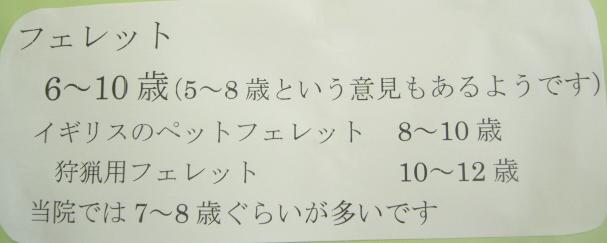 フェレット
6～10歳(5～8歳という意見もあるようです)
イギリスのペットフェレット 8～10歳
狩猟用フェレット 10～12歳
当院では7～8歳ぐらいが多いです